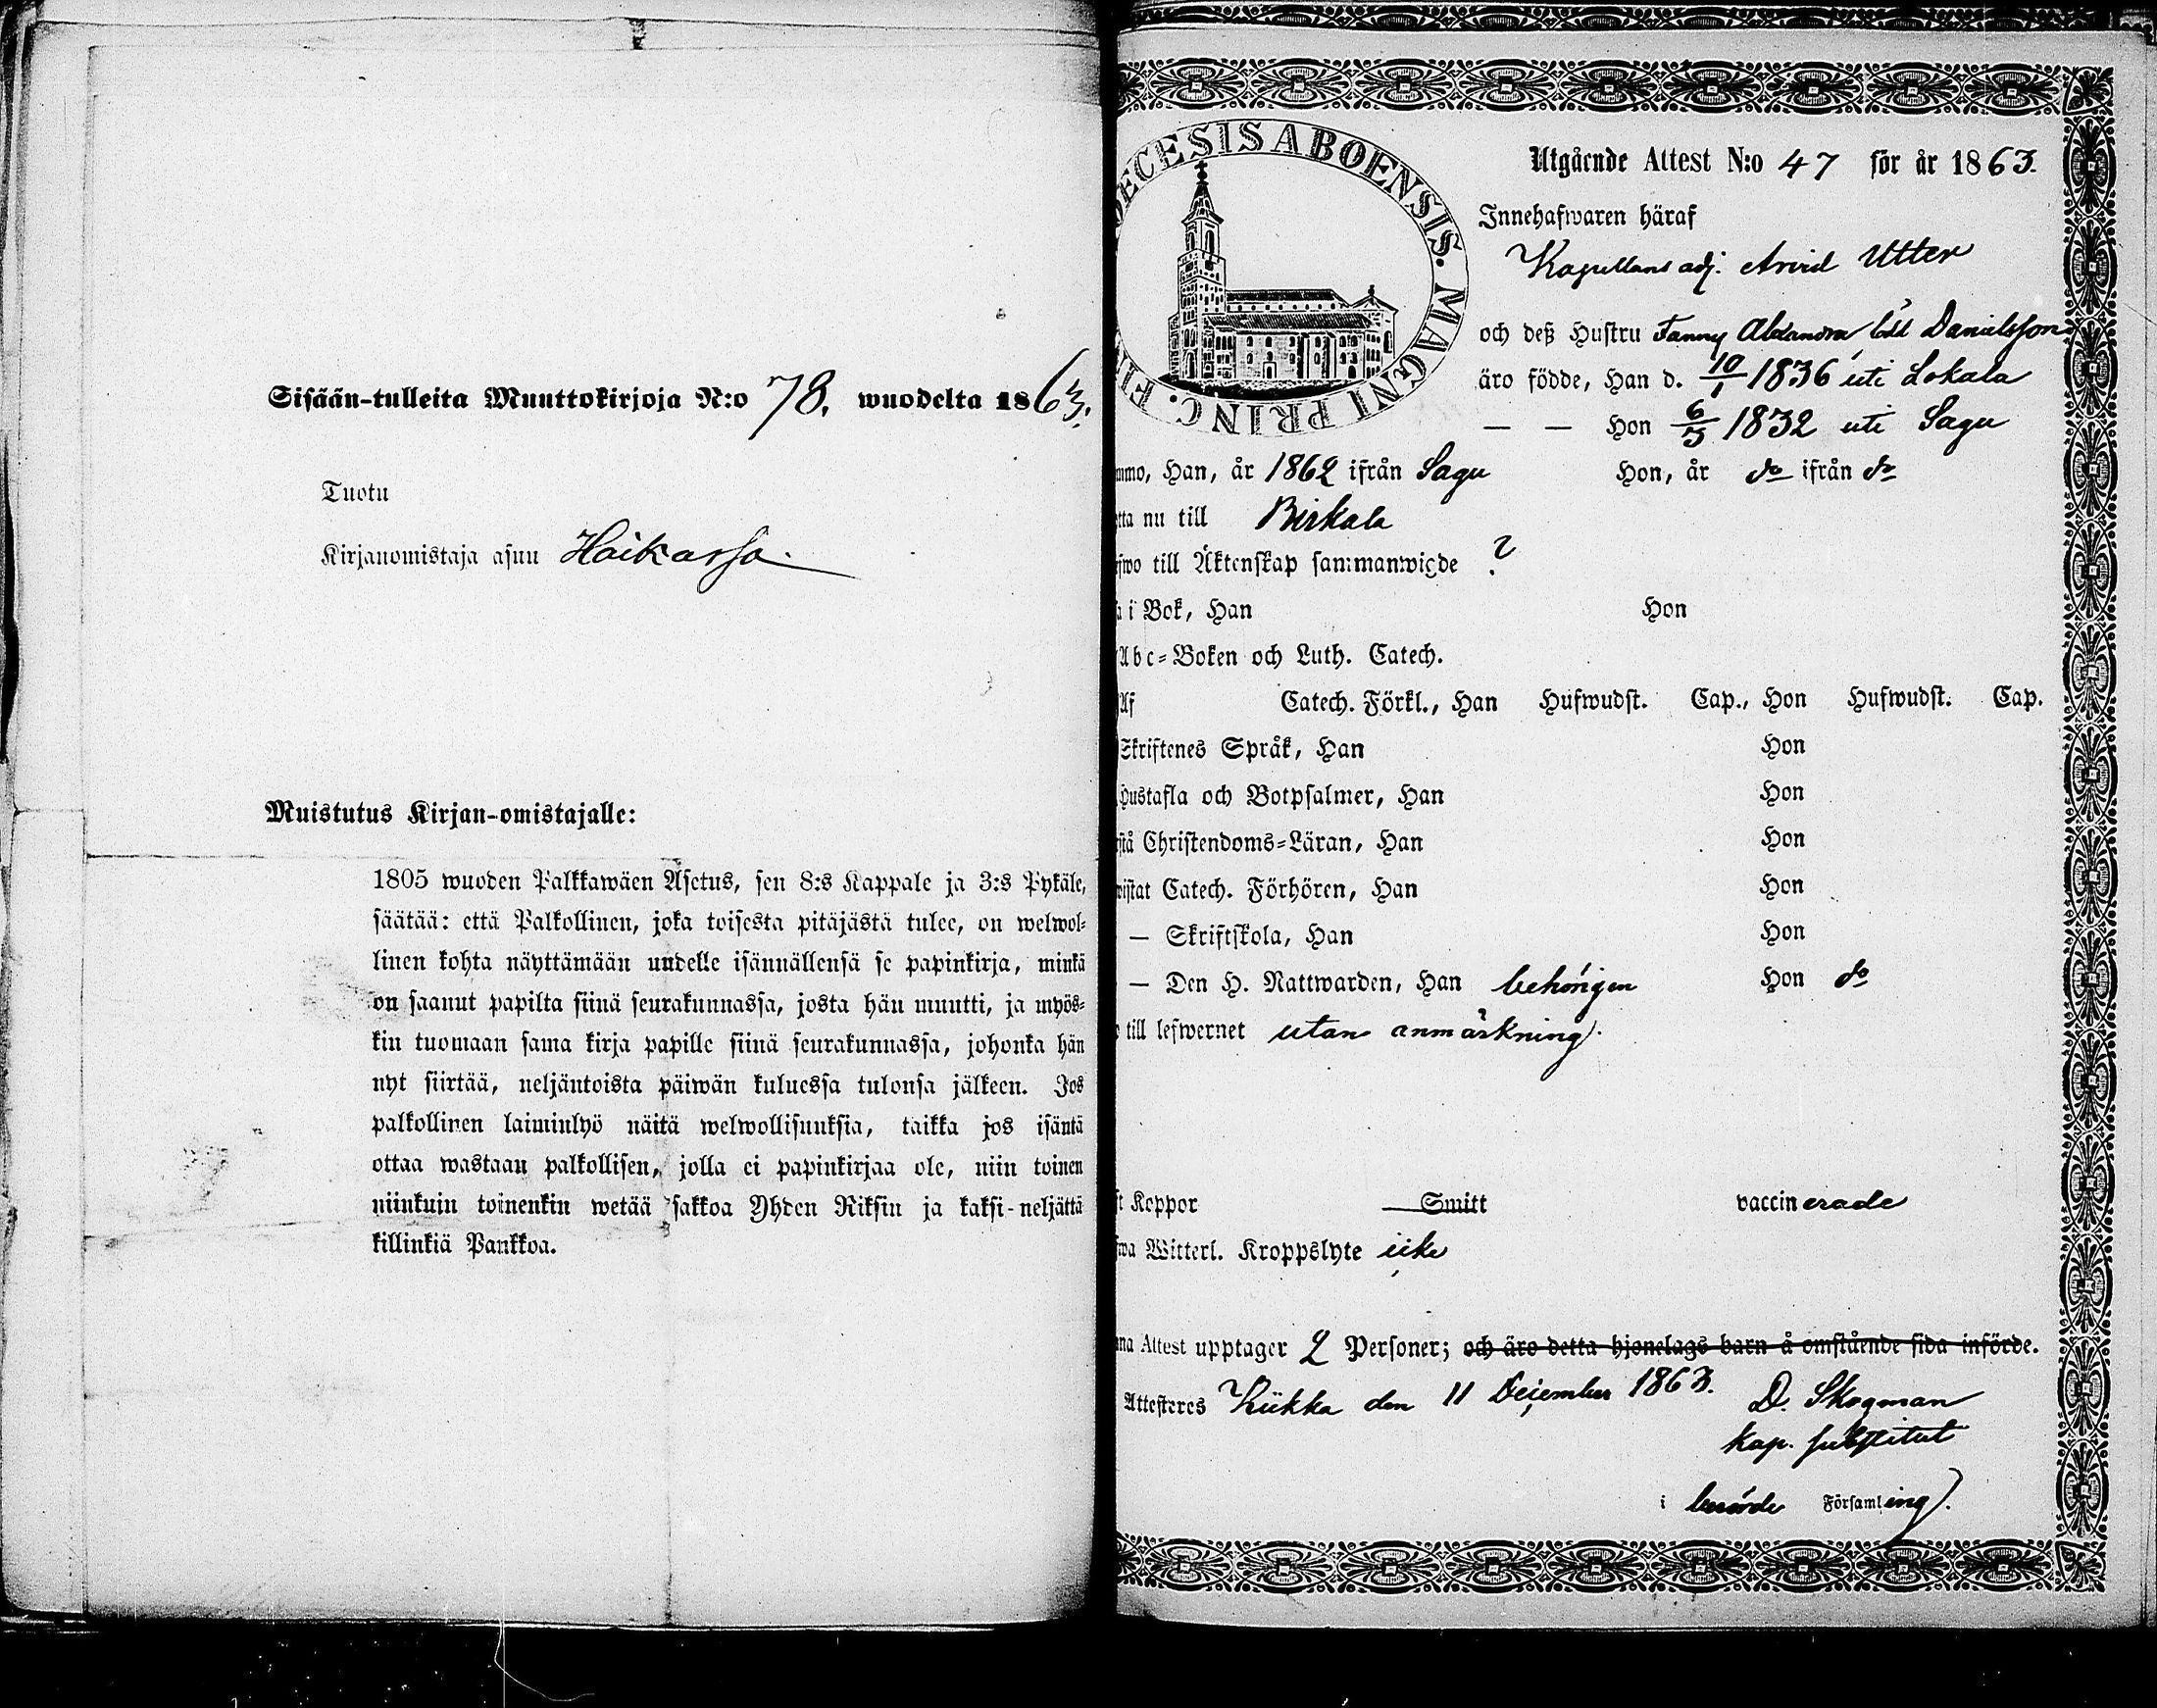 Sisään-tulleita Muuttokirjoja N:o 78. wuodelta 1863.
Tuotu
Kirjanomistaja asuu Haikassa.
Muistutus Kirjan-omistajalle:
1805 wuoden Palkkawäen Asetus, sen 8:s Kappale ja 3:s Pykäle,
säätää: että Palkollinen, joka toisesta pitäjästä tulee, on welwol-
linen kohta näyttämään uudelle isännällensä se papinkirja, minkä
on saanut papilta siinä seurakunnassa, josta hän muutti, ja myös-
kin tuomaan sama kirja papille siinä seurakunnassa, johonka hän
nyt siirtää, neljäntoista päiwän kuluessa tulonsa jälkeen. Jos
palkollinen laiminlyö näitä welwollisuuksia, taikka jos isäntä
ottaa wastaan palkollisen, jolla ei papinkirjaa ole, niin toinen
niinkuin toinenkin wetää sakkoa Yhden Riksin ja kaksi-neljättä
killinkiä Pankkoa.
ECESIS ABOENSIS. MAGNI PRINC. FI
Utgående Attest N:o 47 för år 1863.
Innehafwaren häraf
Kapellans adj. Arvid Utter
och deß Hustru Fanny Alexandra född Danielsson
äro födde, Han d. 10/1 1836 uti Lokala
— — Hon 6/5 1832 uti Sagu
mmo, Han, år 1862 ifrån Sagu Hon, år do ifrån do
tta nu till Birkala
fwo till Äktenskap sammanwigde ?
a i Bok, Han Hon
Abc-Boken och Luth. Catech.
Af Catech. Förkl., Han Hufwudst. Cap., Hon Hufwudst. Cap.
Skriftenes Språk, Han Hon
Hustafla och Botpsalmer, Han Hon
stå Christendoms-Läran, Han Hon
wistat Catech. Förhören, Han Hon
— Skriftskola, Han Hon
— Den H. Nattwarden, Han behörigen Hon do
till lefwernet utan anmärkning.
t Koppor Smitt vaccinerade
fwa Witterl. Kroppslyte icke
na Attest upptager 2 Personer; och äro detta hjonelags barn å omstående sida införde.
Attesteres Kiikka den 11 December 1863. D. Skogman
kap. substitut
i berörde Församling.